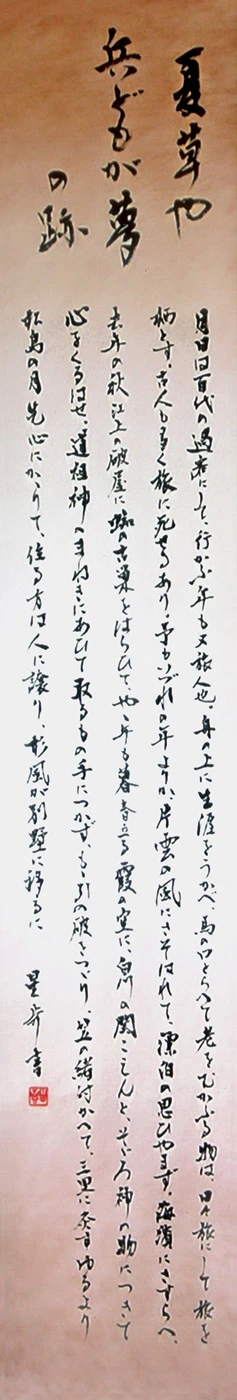 夏草や
兵どもが夢
の跡
月日は百代の過客にして、行かふ年も又旅人也。舟の上に生涯をうかべ、馬の口とらへて老をむかふる物は、日々旅にして旅を
栖とす。古人も多く旅に死せるあり。予もいづれの年よりか、片雲の風にさそはれて、漂泊の思ひやまず、海濱にさすらへ、
去年の秋江上の破屋に蜘の古巣をはらひて、やゝ年も暮春立る霞の空に、白川の関こえんと、そゞろ神の物につきて
心をくるはせ、道祖神のまねきにあひて取るもの手につかず、もゝ引の破をつゞり、笠の緒付かへて、三里に灸すゆるより
松島の月先心にかゝりて、住る方は人に譲り、杉風が別墅に移るに
書